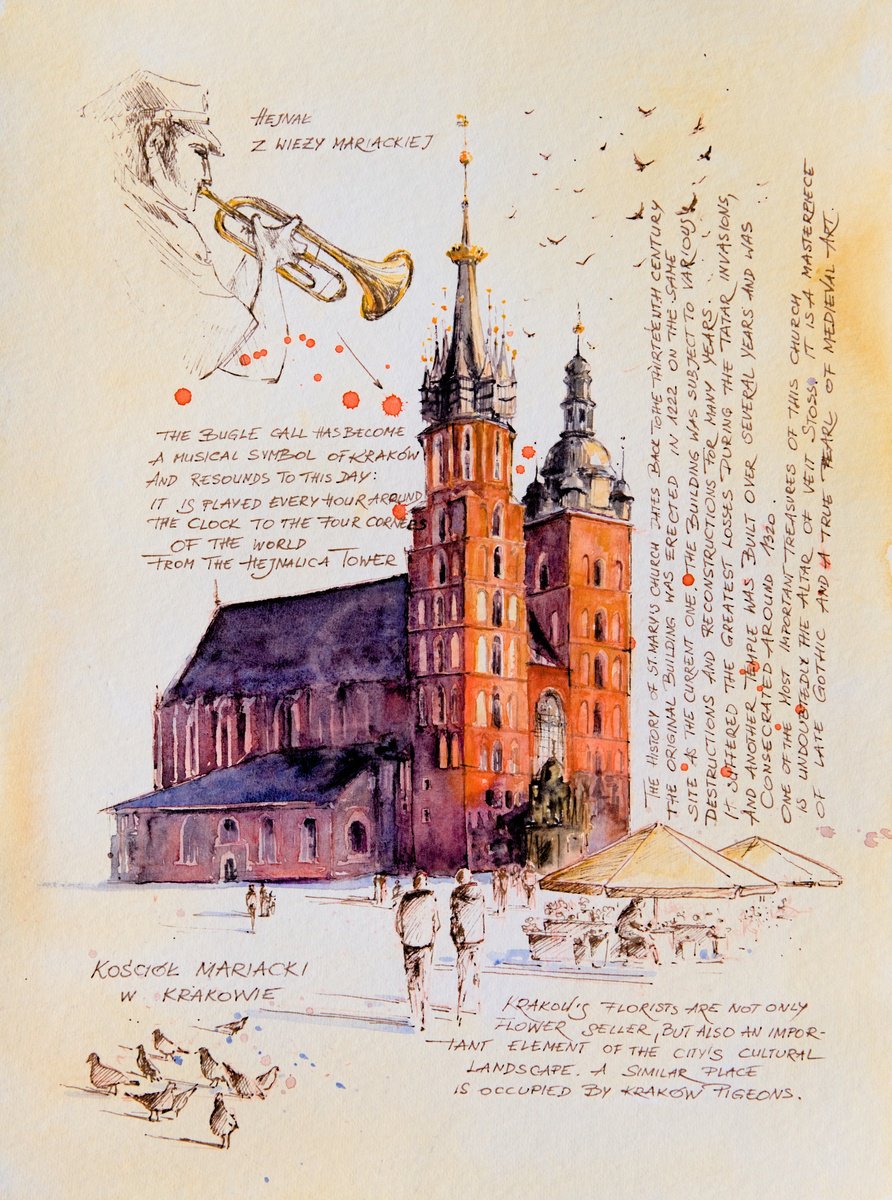 HEJNAŁ
Z WIEŻY MARIACKIEJ
THE BUGLE CALL HAS BECOME
A MUSICAL SYMBOL OF KRAKÓW
AND RESOUNDS TO THIS DAY:
IT IS PLAYED EVERY HOUR AROUND
THE CLOCK TO THE FOUR CORNERS
OF THE WORLD
FROM THE HEJNALICA TOWER
THE HISTORY OF ST. MARY'S CHURCH DATES BACK TO THE THIRTEENTH CENTURY
THE ORIGINAL BUILDING WAS ERECTED IN 1222 ON THE SAME
SITE AS THE CURRENT ONE. THE BUILDING WAS SUBJECT TO VARIOUS
DESTRUCTIONS AND RECONSTRUCTIONS FOR MANY YEARS.
IT SUFFERED THE GREATEST LOSSES DURING THE TATAR INVASIONS,
AND ANOTHER TEMPLE WAS BUILT OVER SEVERAL YEARS AND WAS
CONSECRATED AROUND 1320.
ONE OF THE MOST IMPORTANT TREASURES OF THIS CHURCH
IS UNDOUBTEDLY THE ALTAR OF VEIT STOSS. IT IS A MASTERPIECE
OF LATE GOTHIC AND A TRUE PEARL OF MEDIEVAL ART.
KOŚCIÓŁ MARIACKI
W KRAKOWIE
KRAKOW'S FLORISTS ARE NOT ONLY
FLOWER SELLER, BUT ALSO AN IMPOR-
TANT ELEMENT OF THE CITY'S CULTURAL
LANDSCAPE. A SIMILAR PLACE
IS OCCUPIED BY KRAKÓW PIGEONS.